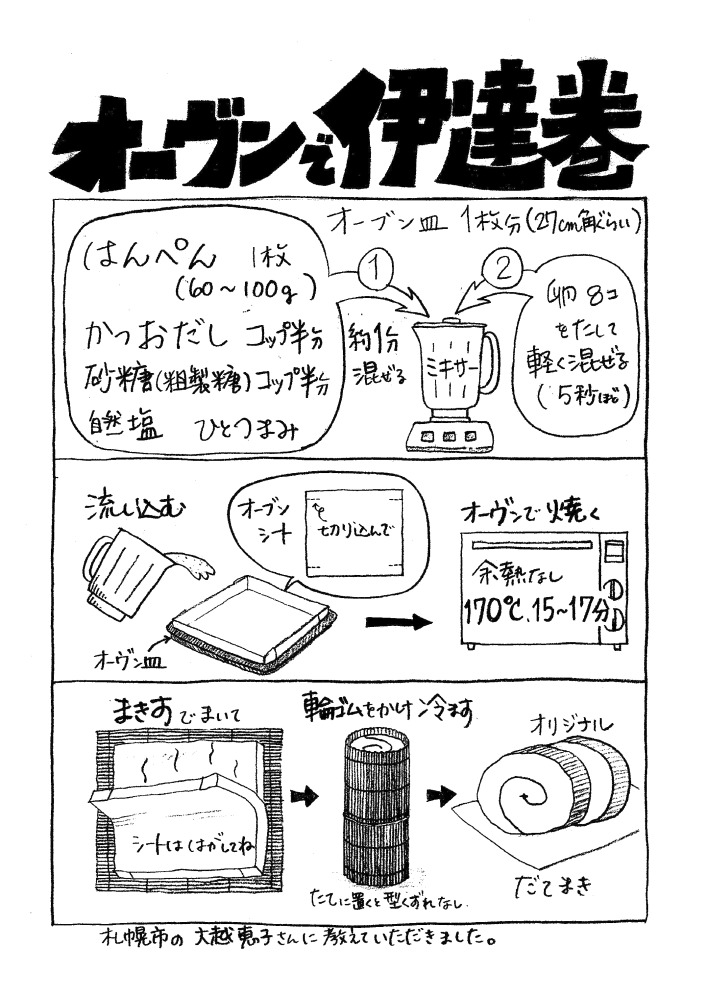 オーヴンで伊達巻
オーブン皿 1枚分(27cm角ぐらい)
はんぺん 1枚
(60〜100g)
かつおだし コップ半分
砂糖(粗製糖)コップ半分
自然塩 ひとつまみ
①
約1分
混ぜる
ミキサー
②
卵 8コ
をたして
軽く混ぜる
(5秒ほど)
流し込む
オーブン
シート
切り込んで
オーヴン皿
オーヴンで焼く
余熱なし
170℃、15〜17分
まきすでまいて
シートははがしてね
輪ゴムをかけ冷ます
たてに置くと型くずれなし
オリジナル
だてまき
札幌市の大越恵子さんに教えていただきました。